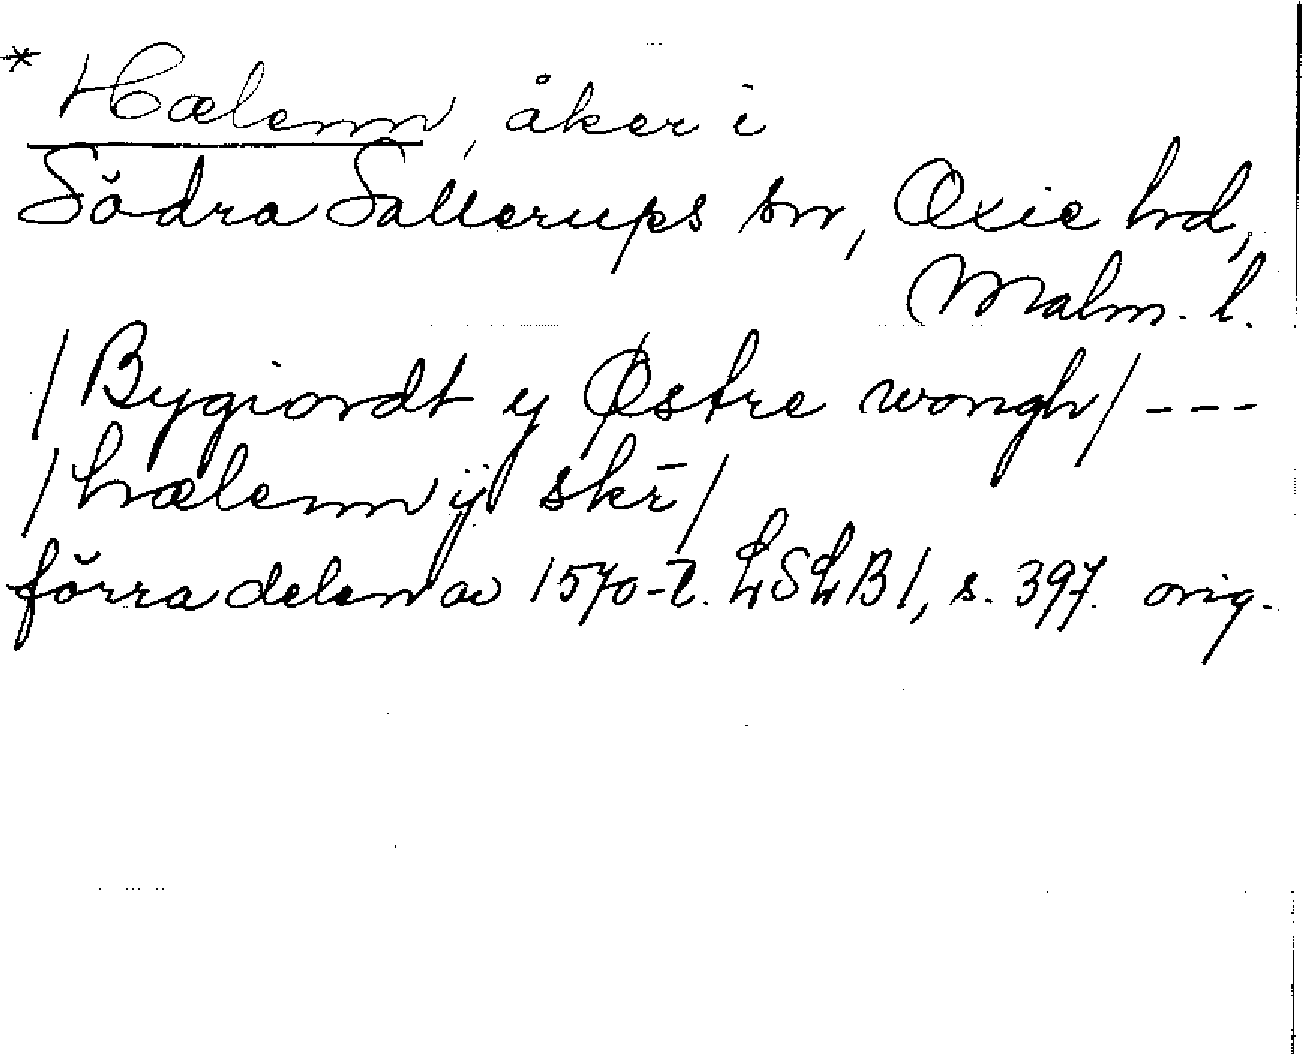 * Hælenn, åker i
Södra Sallerups sn, Oxie hd,
Malm. l.
/Bygiordt y Østre wongh/ ---
/hælenn ÿ skr̄/
förra delen av 1570-t. LSLB1, s. 397. orig.